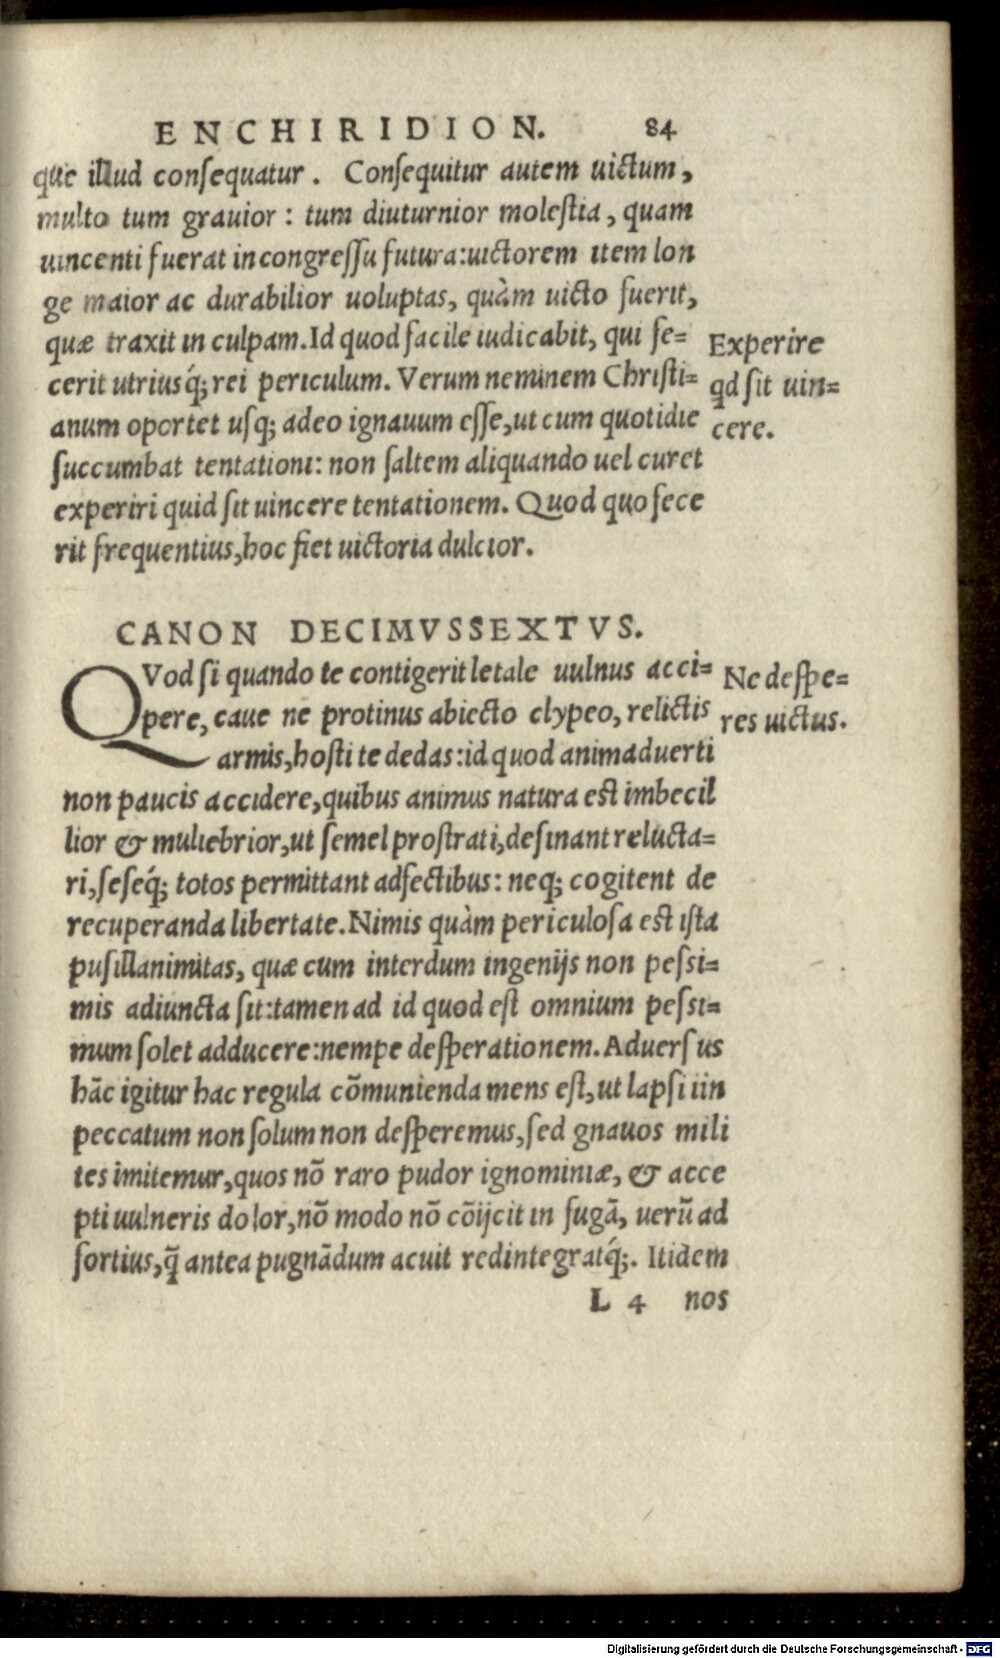 ENCHIRIDION. 84
que illud conſequatur. Conſequitur autem uictum,
multo tum grauior: tum diuturnior moleſtia, quam
uincenti fuerat in congreſſu futura: uictorem item lon
ge maior ac durabilior uoluptas, quàm uicto fuerit,
quæ traxit in culpam. Id quod facile iudicabit, qui fe=
cerit utriusq́; rei periculum. Verum neminem Chriſti=
anum oportet uſq; adeo ignauum eſſe, ut cum quotidie
ſuccumbat tentationi: non ſaltem aliquando uel curet
experiri quid ſit uincere tentationem. Quod quo fece
rit frequentius, hoc fiet uictoria dulcior.
Experire
qd ſit uin=
cere.
CANON DECIMVSSEXTVS.
QVod ſi quando te contigerit letale uulnus acci=
pere, caue ne protinus abiecto clypeo, relictis
armis, hoſti te dedas: id quod animaduerti
non paucis accidere, quibus animus natura eſt imbecil
lior & muliebrior, ut ſemel proſtrati, deſinant relucta=
ri, ſeſeq́; totos permittant adfectibus: neq; cogitent de
recuperanda libertate. Nimis quàm periculoſa eſt iſta
puſillanimitas, quæ cum interdum ingenijs non peſsi=
mis adiuncta ſit: tamen ad id quod eſt omnium peſsi=
mum ſolet adducere: nempe deſperationem. Aduerſus
hāc igitur hac regula cōmunienda mens eſt, ut lapſi iin
peccatum non ſolum non deſperemus, ſed gnauos mili
tes imitemur, quos nō raro pudor ignominiæ, & acce
pti uulneris dolor, nō modo nō cōijcit in fugā, uerū ad
fortius, q̄ antea pugnādum acuit redintegratq́;. Itidem
Ne deſpe=
res uictus.
L 4 nos
Digitalisierung gefördert durch die Deutsche Forschungsgemeinschaft - DFG